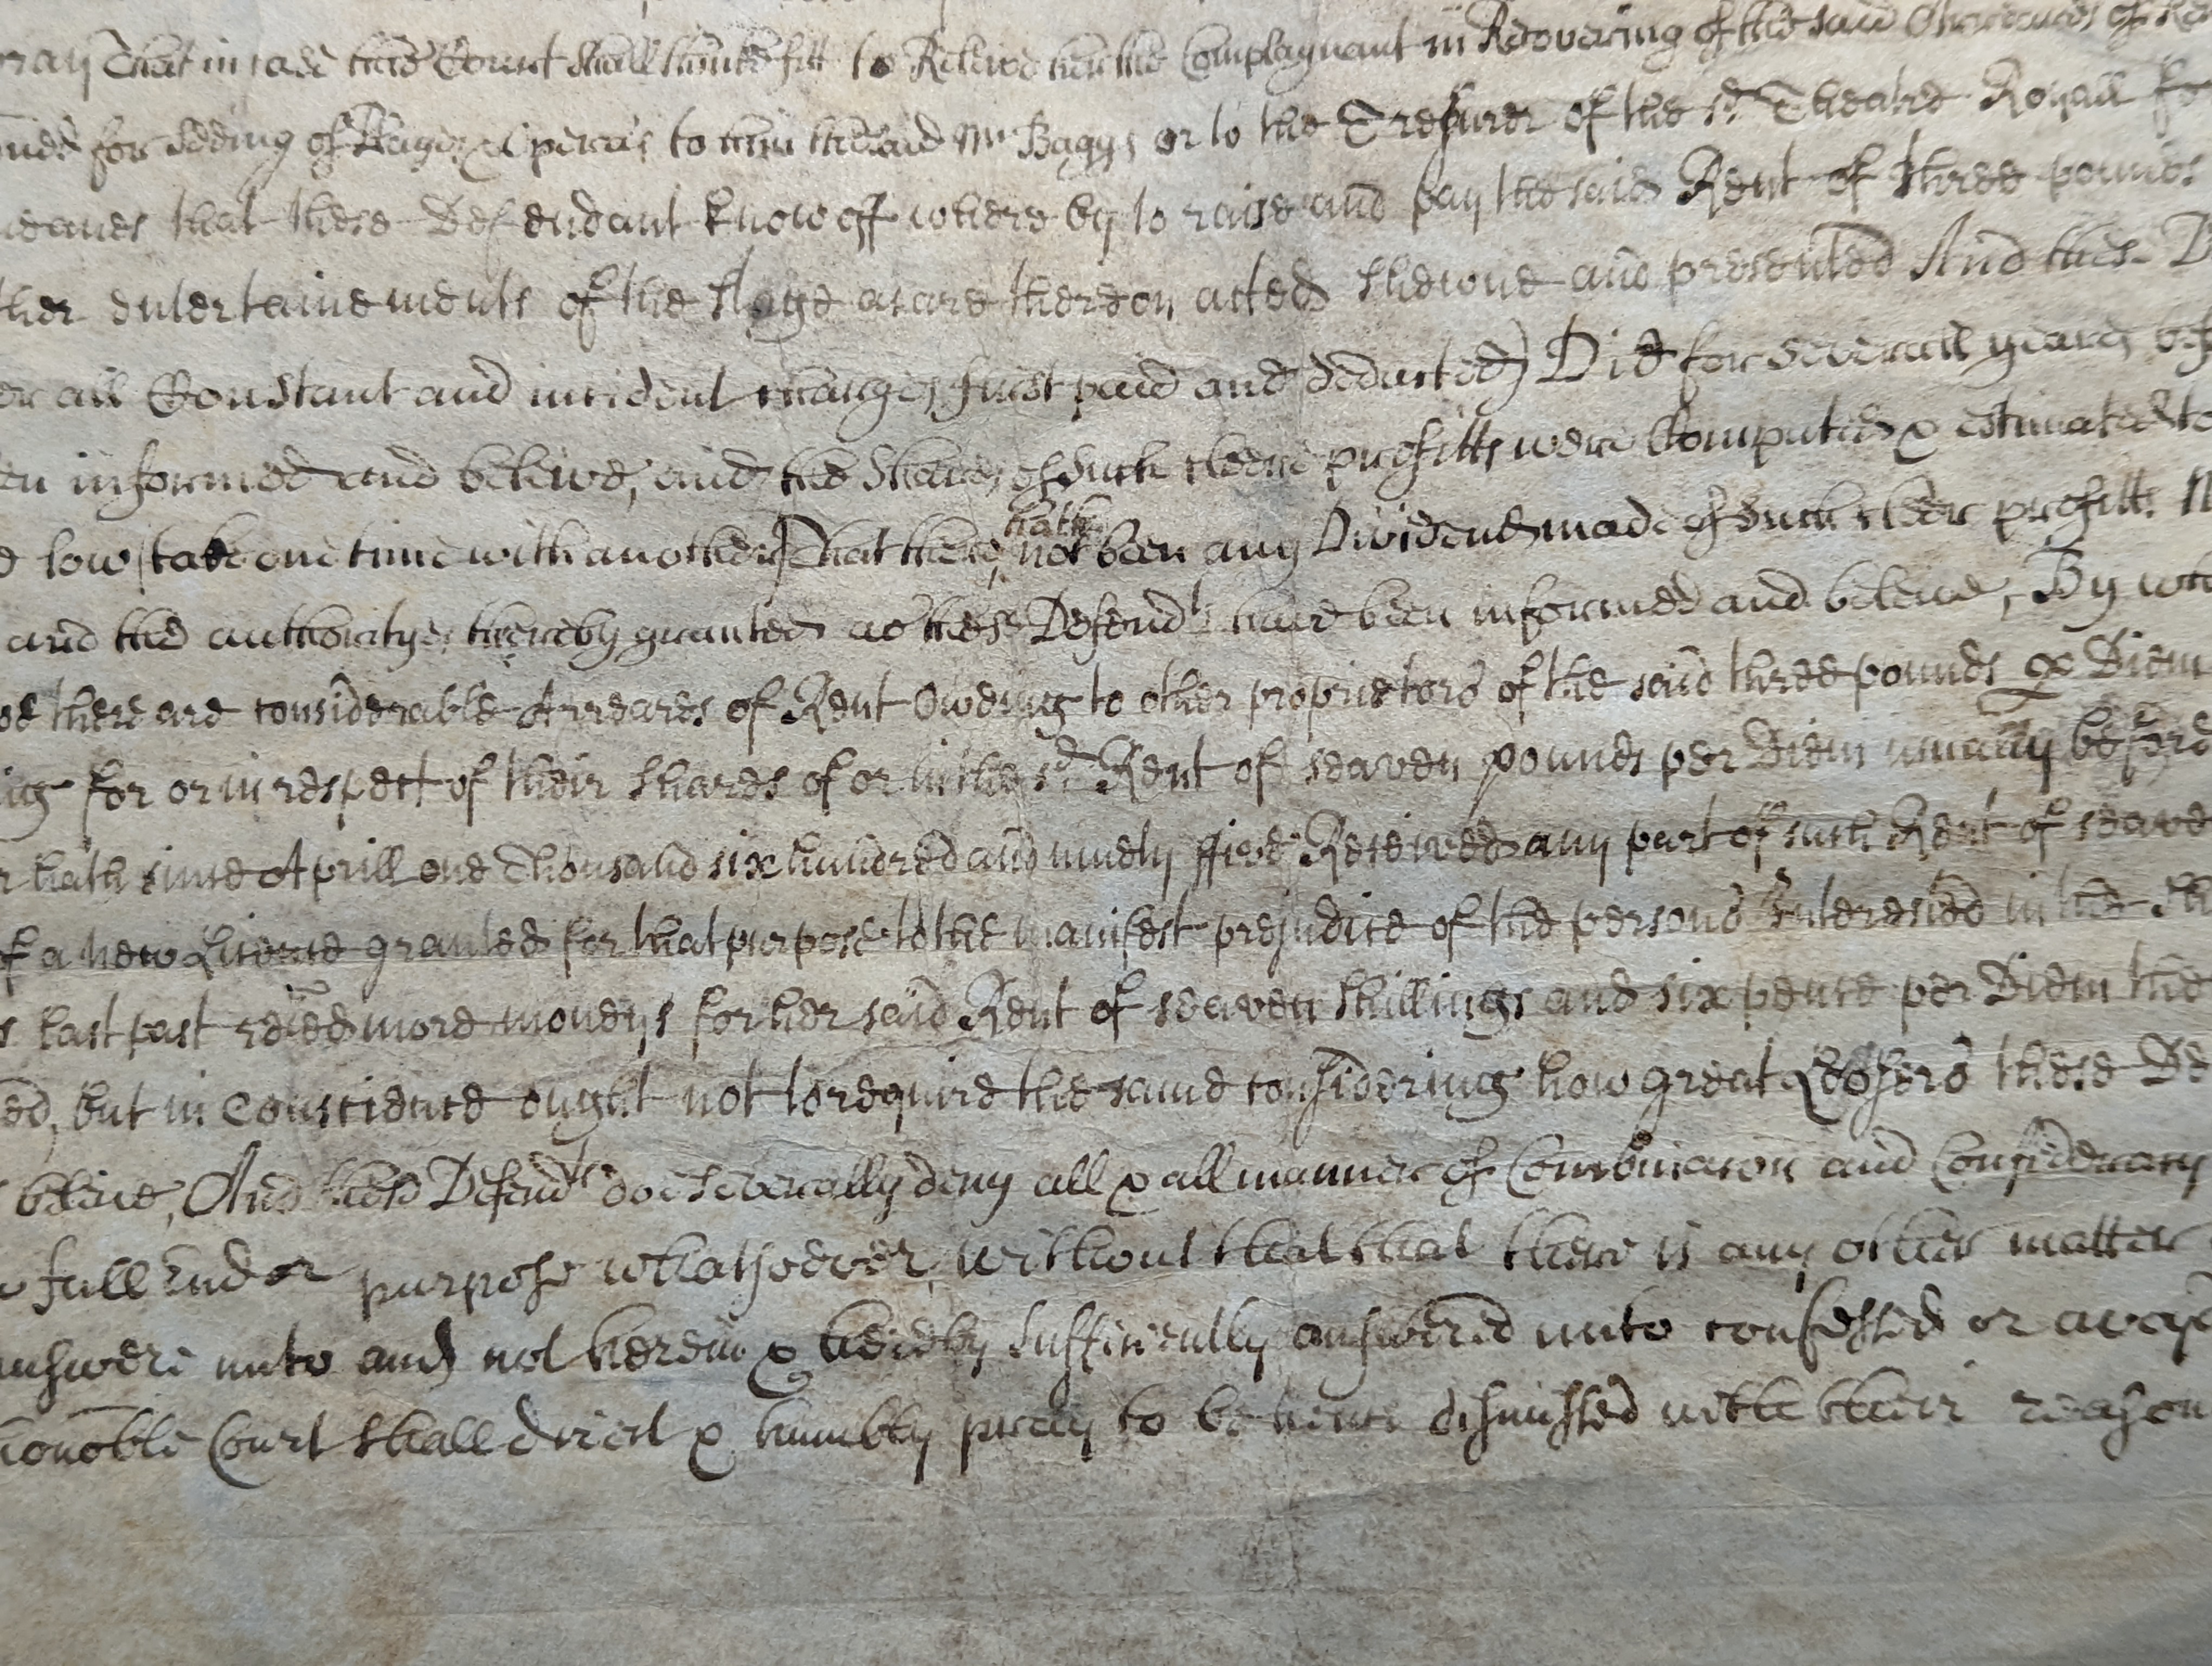 pray That in case this Court shall thinke fitt to Releive her the Complaynant in Recovering of the said Arreares of
for seeing of Playes & Operas to him the said Mr Baggs or to the Tresurer of the sd Theatre Royall
meanes that these Defendant know off where by to raise and pay the said Rent of three pounds
ther entertainements of the stage as are thereon acted shewne and presented And thes
all Constant and incident charges first paid and deducted) Did for severall yeares
informed and beleive, and the Shares of such cleere profitts were Computed & estimated to
low (take one time with another) That there hath not been any Dividend made of such cleer profitts
and the authoritye thereby granted as these Defendts have been informed and beleive, By
there are considerable Arreares of Rent Oweing to other proprietors of the said three pounds p Diem
for or in respect of their shares of or in the sd Rent of seaven pounds per Diem usually before
hath since Aprill one Thousand six hundred and ninety ffive Received any part of such Rent of
of a new Licence granted for that purpose to the manifest prejudice of the persons Interested in the
last past reced more moneys for her said Rent of seaven shillings and six pence per Diem
but in Conscience ought not to require the same considering how great Lossers these
beleive, And these Defendts doe severally deny all & all manner of Combinacon and Confederacy
full End or purpose whatsoever, without that that there is any other matter
answere unto and not herein & hereby sufficiently answered unto confessed or
honoble Court shall direct & humbly pray to be hence dismissed with their